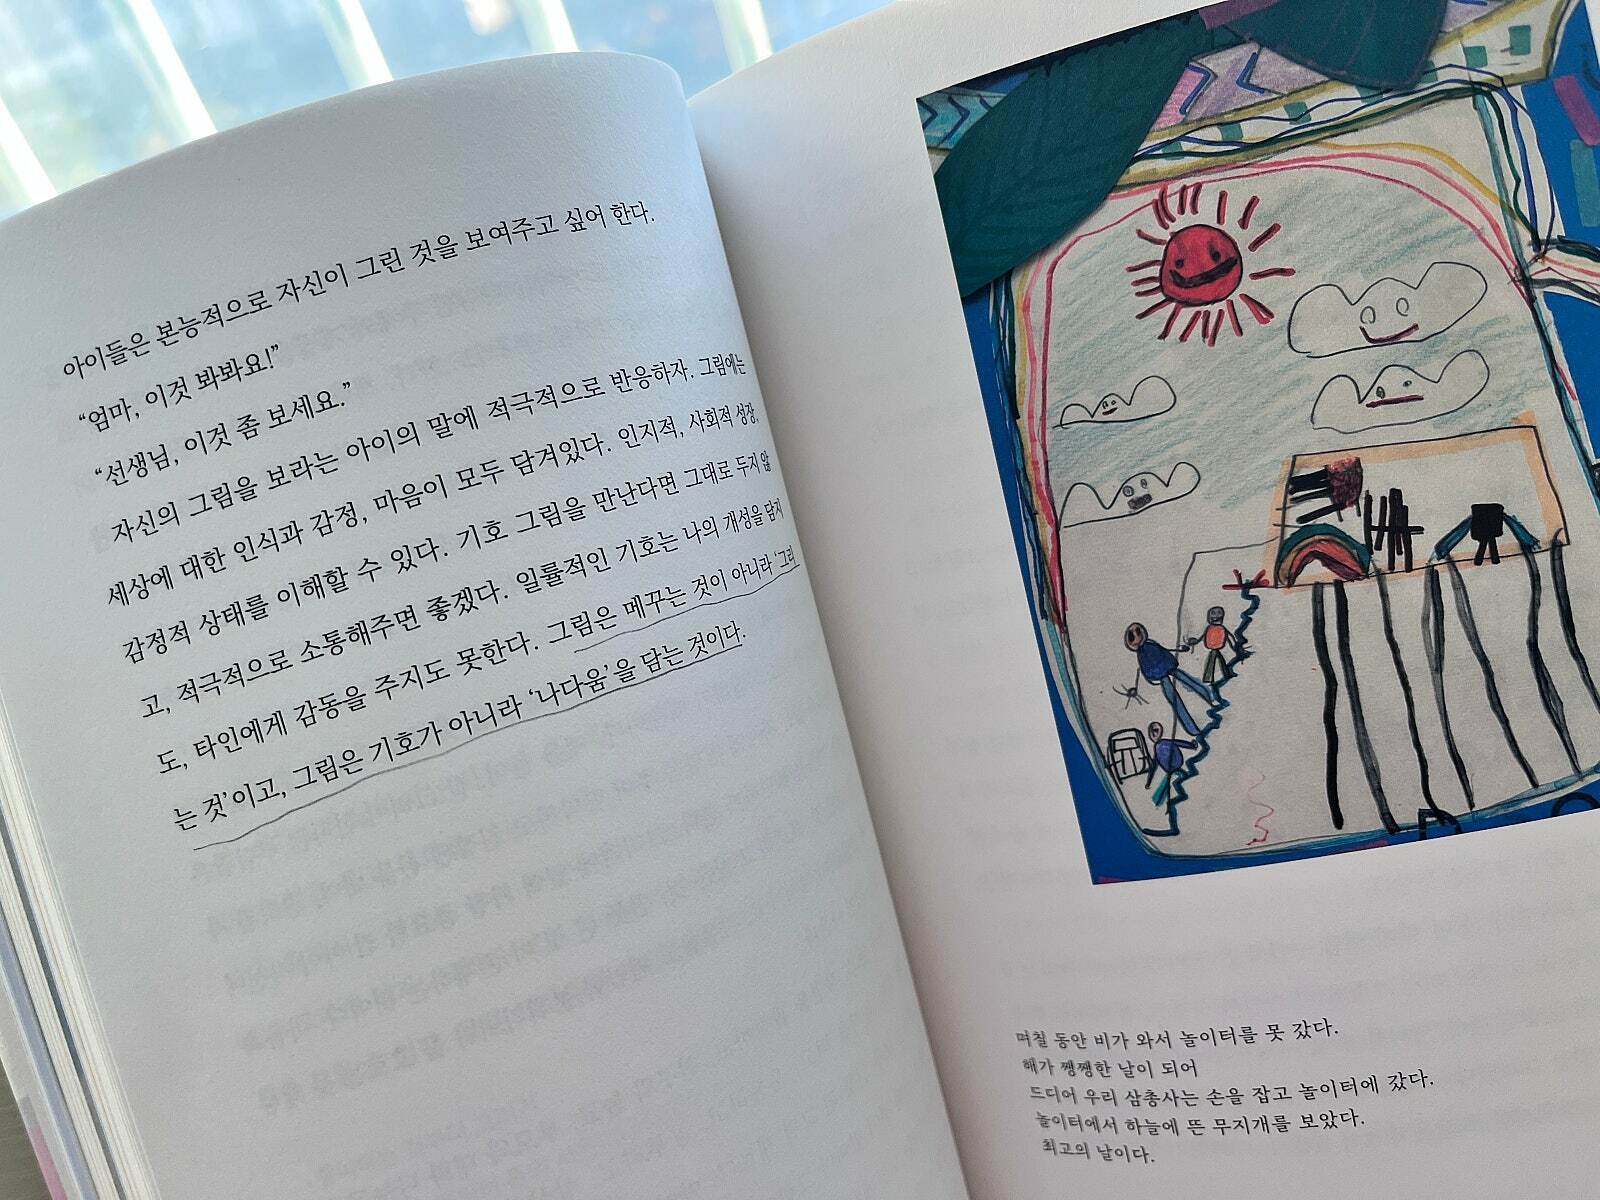 아이들은 본능적으로 자신이 그린 것을 보여주고 싶어 한다.
“엄마, 이것 봐봐요!”
“선생님, 이것 좀 보세요.”
자신의 그림을 보라는 아이의 말에 적극적으로 반응하자. 그림에는
세상에 대한 인식과 감정, 마음이 모두 담겨있다. 인지적, 사회적 성장,
감정적 상태를 이해할 수 있다. 기호 그림을 만난다면 그대로 두지 않
고, 적극적으로 소통해주면 좋겠다. 일률적인 기호는 나의 개성을 담지
도, 타인에게 감동을 주지도 못한다. 그림은 메꾸는 것이 아니라 ‘그리
는 것’이고, 그림은 기호가 아니라 ‘나다움’을 담는 것이다.
며칠 동안 비가 와서 놀이터를 못 갔다.
해가 쨍쨍한 날이 되어
드디어 우리 삼총사는 손을 잡고 놀이터에 갔다.
놀이터에서 하늘에 뜬 무지개를 보았다.
최고의 날이다.